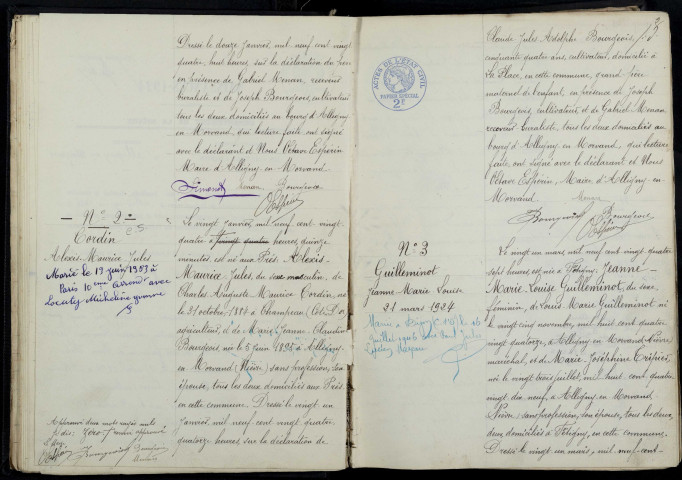 Dressé le douze Janvier, mil neuf cent vingt
quatre, huit heures, sur la déclaration du père
en présence de Gabriel Menan, receveur
buraliste et de Joseph Bourgeois, cultivateur
tous les deux domiciliés au bourg d'Alligny
en Morvand, qui lecture faite ont signé
avec le déclarant et Nous Octave Esperin
Maire d'Alligny en Morvand
Simonot Menan Bourgeois
OEsperin
N° 2
Cordin
Alexis Maurice Jules
Marié le 19 juin 1953 à
Paris 10ème arrond avec
Micheline
Le vingt janvier, mil neuf cent vingt
quatre à heures, quinze
minutes est né aux Prés, Alexis
Maurice Jules, du sexe masculin, de
Charles Auguste Maurice Cordin, né
le 31 octobre à Champeau (Côte d'Or)
agriculteur, et de Marie Jeanne Claudine
Bourgeois, née le 5 juin 1895 à Alligny
en Morvand (Nièvre) sans profession, son
épouse, tous les deux domiciliés aux Prés
en cette commune. Dressé le vingt un
Janvier, mil neuf cent vingt quatre
quatorze heures sur la déclaration de
Approuvé deux mots rayés nuls
ACTES DE L'ÉTAT CIVIL
PAPIER SPÉCIAL
2F
3
Claude Jules Adolphe Bourgeois,
cinquante quatre ans, cultivateur, domicilié à
la Place, en cette commune, grand père
maternel de l'enfant, en présence de Joseph
Bourgeois, cultivateur, et de Gabriel Menan
receveur buraliste, tous les deux domiciliés au
bourg d'Alligny en Morvand, qui lecture
faite, ont signé avec le déclarant et Nous
Octave Esperin, Maire d'Alligny en
Morvand
Menan
Bourgeois Bourgeois
OEsperin
N° 3
Guilleminot
Jeanne Marie Louise
21 mars 1924
Le vingt un mars, mil neuf cent vingt quatre
sept heures, est née à Fétigny, Jeanne
Marie Louise Guilleminot, du sexe
féminin, de Louis Marie Guilleminot né
le vingt cinq novembre, mil huit cent quatre
vingt quatorze, à Alligny en Morvand Nièvre
maréchal, et de Marie Joséphine Crépier
née le vingt trois juillet, mil huit cent quatre
vingt dix neuf, à Alligny en Morvand
Nièvre sans profession, son épouse, tous les deux
domiciliés à Fétigny, en cette commune.
Dressé le vingt un mars, mil neuf cent